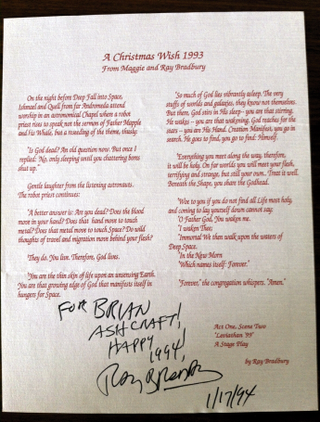 A Christmas Wish 1993
From Maggie and Ray Bradbury
On the night before Deep Fall into Space,
Ishmael and Quell from far Andromeda attend
worship in an astronomical Chapel where a robot
priest rises to speak not the sermon of Father Mapple
and His Whale, but a rewording of the theme, thusly:
"Is God dead? An old question now. But once I
replied: 'No, only sleeping until you chattering bores
shut up.'
Gentle laughter from the listening astronauts.
The robot priest continues:
"A better answer is: Are you dead? Does the blood
move in your hand? Does that hand move to touch
metal? Does that metal move to touch Space? Do wild
thoughts of travel and migration move behind your flesh?
They do. You live. Therefore, God lives.
"You are the thin skin of life upon an unsensing Earth.
You are that growing edge of God that manifests itself in
hungers for Space.
"So much of God lies vibrantly asleep. The very
stuffs of worlds and galaxies, they know not themselves.
But there, God stirs in His sleep—you are that stirring.
He wakes – you are that wakening. God reaches for the
stars – you are His Hand. Creation Manifest, you go in
search. He goes to find, you go to find: Himself.
"Everything you meet along the way, therefore,
it will be holy. On far worlds you will meet your flesh,
terrifying and strange, but still your own. Treat it well.
Beneath the Shape, you share the Godhead.
"Woe to you if you do not find all Life most holy,
and coming to lay yourself down cannot say:
'O Father God, You waken me.
'I waken Thee;
'Immortal We then walk upon the waters of
Deep Space.
'In the New Morn
'Which names itself: Forever.'
"'Forever,' the congregation whispers. 'Amen.'
FOR BRIAN
ASHCRAFT!
HAPPY
1994!
Ray Bradbury
1/17/94
Act One, Scene Two
'Leviathan '99'
A Stage Play
by Ray Bradbury